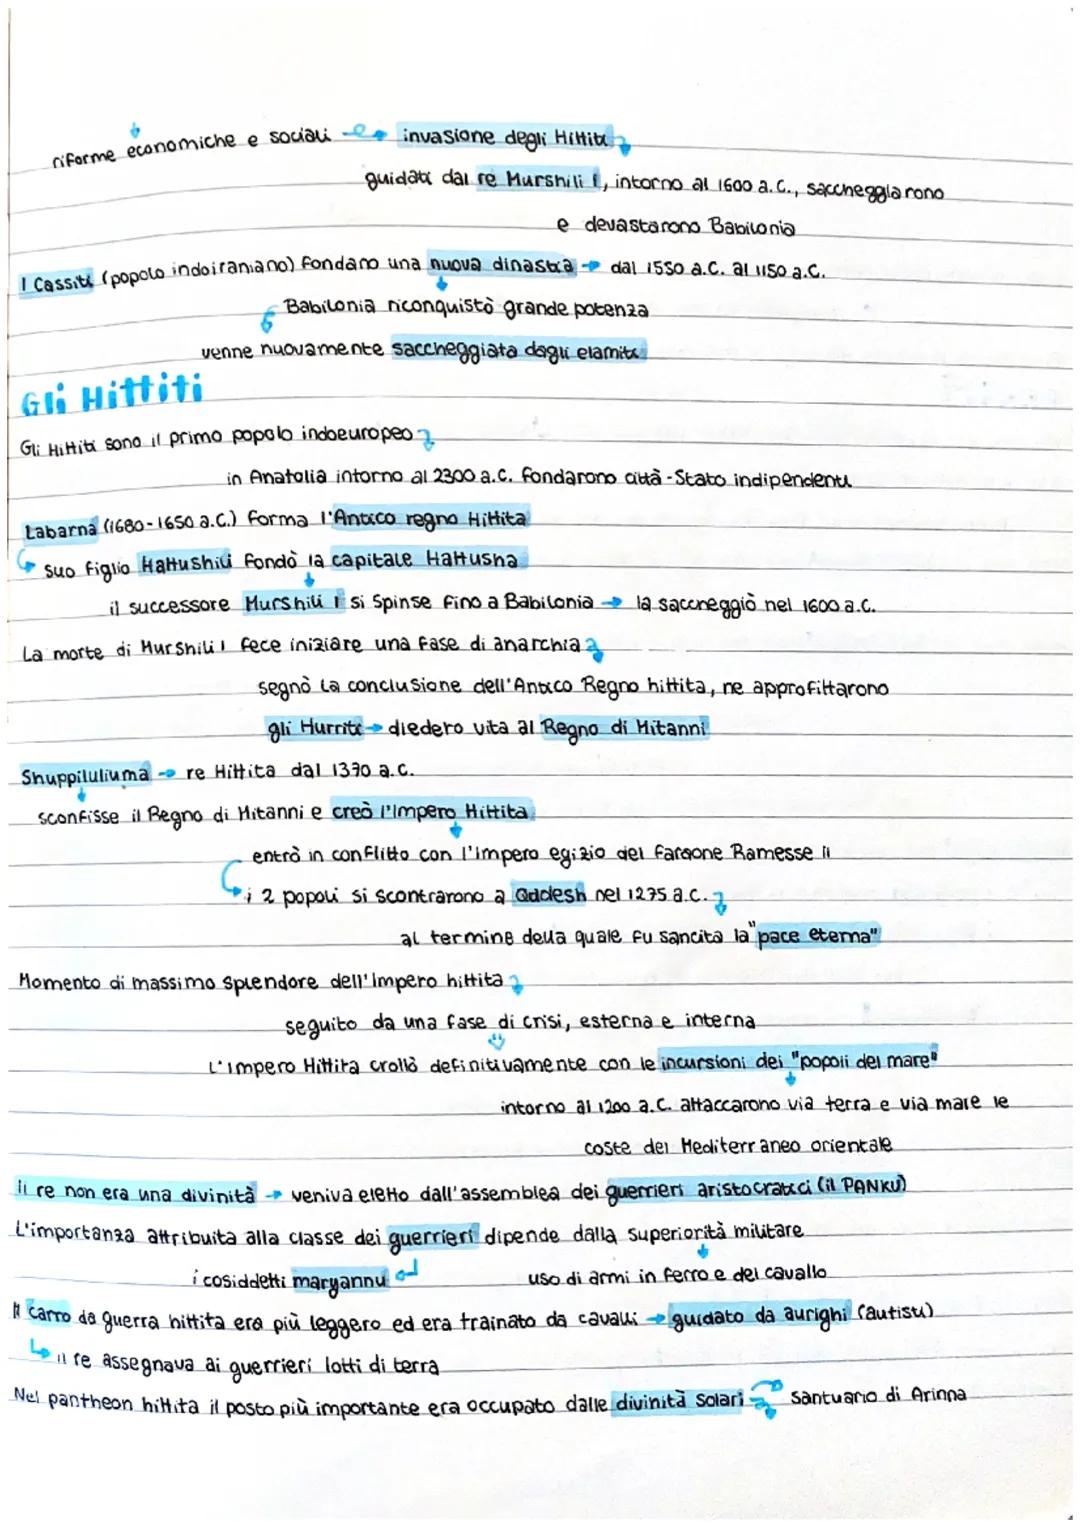 riforme economiche e sociali e → invasione degli Hittiti
guidati dal re Murshili I, intorno al 1600 a.C., saccheggiarono
e devastarono Babilonia
I Cassiti (popolo indoiraniano) fondano una nuova dinastia → dal 1550 a.C. al 1150 a.C.
Babilonia riconquistò grande potenza
venne nuovamente saccheggiata dagli elamiti
Gli Hittiti
Gli Hittiti sono il primo popolo indoeuropeo
in Anatolia intorno al 2300 a.C. fondarono città-Stato indipendenti
Labarna (1680-1650 a.C.) forma l'Antico regno Hittita
suo figlio Hattushili fondò la capitale Hattusha
il successore Murshili I si spinse fino a Babilonia → la saccheggiò nel 1600 a.C.
La morte di Murshili I fece iniziare una fase di anarchia
segnò la conclusione dell'Antico Regno hittita, ne approfittarono
gli Hurriti → diedero vita al Regno di Mitanni
Shuppiluliuma → re Hittita dal 1370 a.C.
sconfisse il Regno di Mitanni e creò l'Impero Hittita
entrò in conflitto con l'impero egizio del faraone Ramesse II
i 2 popoli si scontrarono a Qadesh nel 1275 a.C.
al termine della quale fu sancita la "pace eterna"
Momento di massimo splendore dell'impero hittita
seguito da una fase di crisi, esterna e interna
L'impero Hittita crollò definitivamente con le incursioni dei "popoli del mare"
intorno al 1200 a.C. attaccarono via terra e via mare le
coste del Mediterraneo orientale
il re non era una divinità → veniva eletto dall'assemblea dei guerrieri aristocratici (il PANKU)
L'importanza attribuita alla classe dei guerrieri dipende dalla superiorità militare
i cosiddetti maryannu uso di armi in ferro e del cavallo
Il carro da guerra hittita era più leggero ed era trainato da cavalli → guidato da aurighi (autisti)
il re assegnava ai guerrieri lotti di terra
Nel pantheon hittita il posto più importante era occupato dalle divinità solari → santuario di Arinna